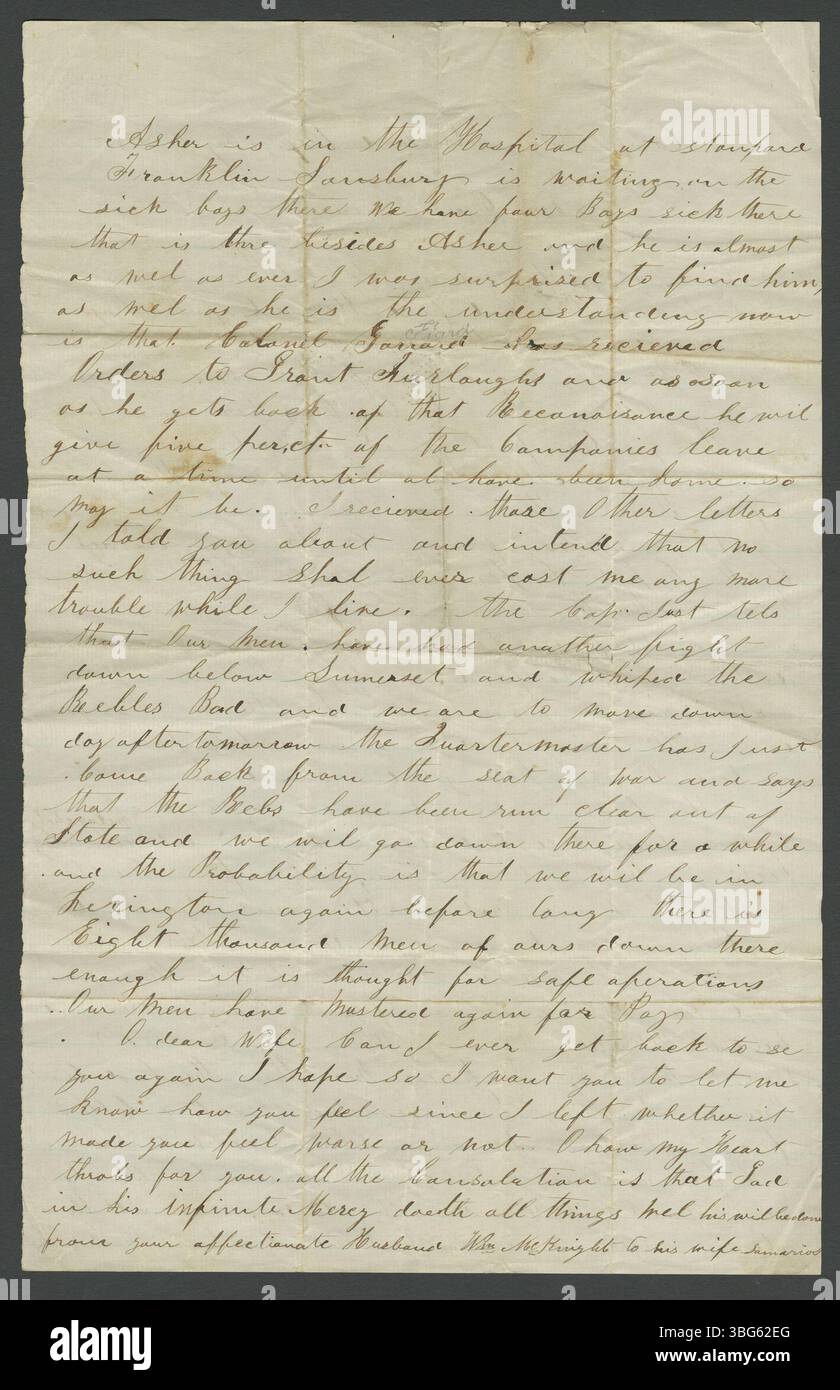 Asher is in the Hospital at stanford
Franklin Sansbury is waiting on the
sick boys there We have four Boys sick there
that is thre besides Asher and he is almost
as wel as ever I was surprised to find him,
as wel as he is the understanding now
is that Colonel Garrard has recieved
Orders to Grant Furloughs and as soon
as he gets back of that Reconaisance he wil
give five per,ct of the Companies leave
at a time until al have been home so
may it be. I recieved those Other letters
I told you about and intend that no
such thing Shal ever cost me any more
trouble while I live. the Cap. Just tels
that Our Men have had another fight
down below Sumerset and whiped the
Rebbles Bad and we are to move down
day aftertomorrow the Quartermaster has Just
Come Back from the seat of war and says
that the Rebs have been run clear out of
State and we wil go down there for a while
and the Probability is that we wil be in
Lexington again before long there is
Eight thousand Men of ours down there
enough it is thought for safe operations
Our Men have Mustered again for Pay
O dear Wife Can I ever get back to se
you again I hope so I want you to let me
know how you feel since I left whether it
made you feel worse or not. O how my Heart
throbs for you. all the Consolation is that God
in his infinite Mercy doeth all things Wel his will be done
from your affectionate Husband Wm McKnight to his wife Samaria
alamy
Image ID: 3BG62EG
www.alamy.com